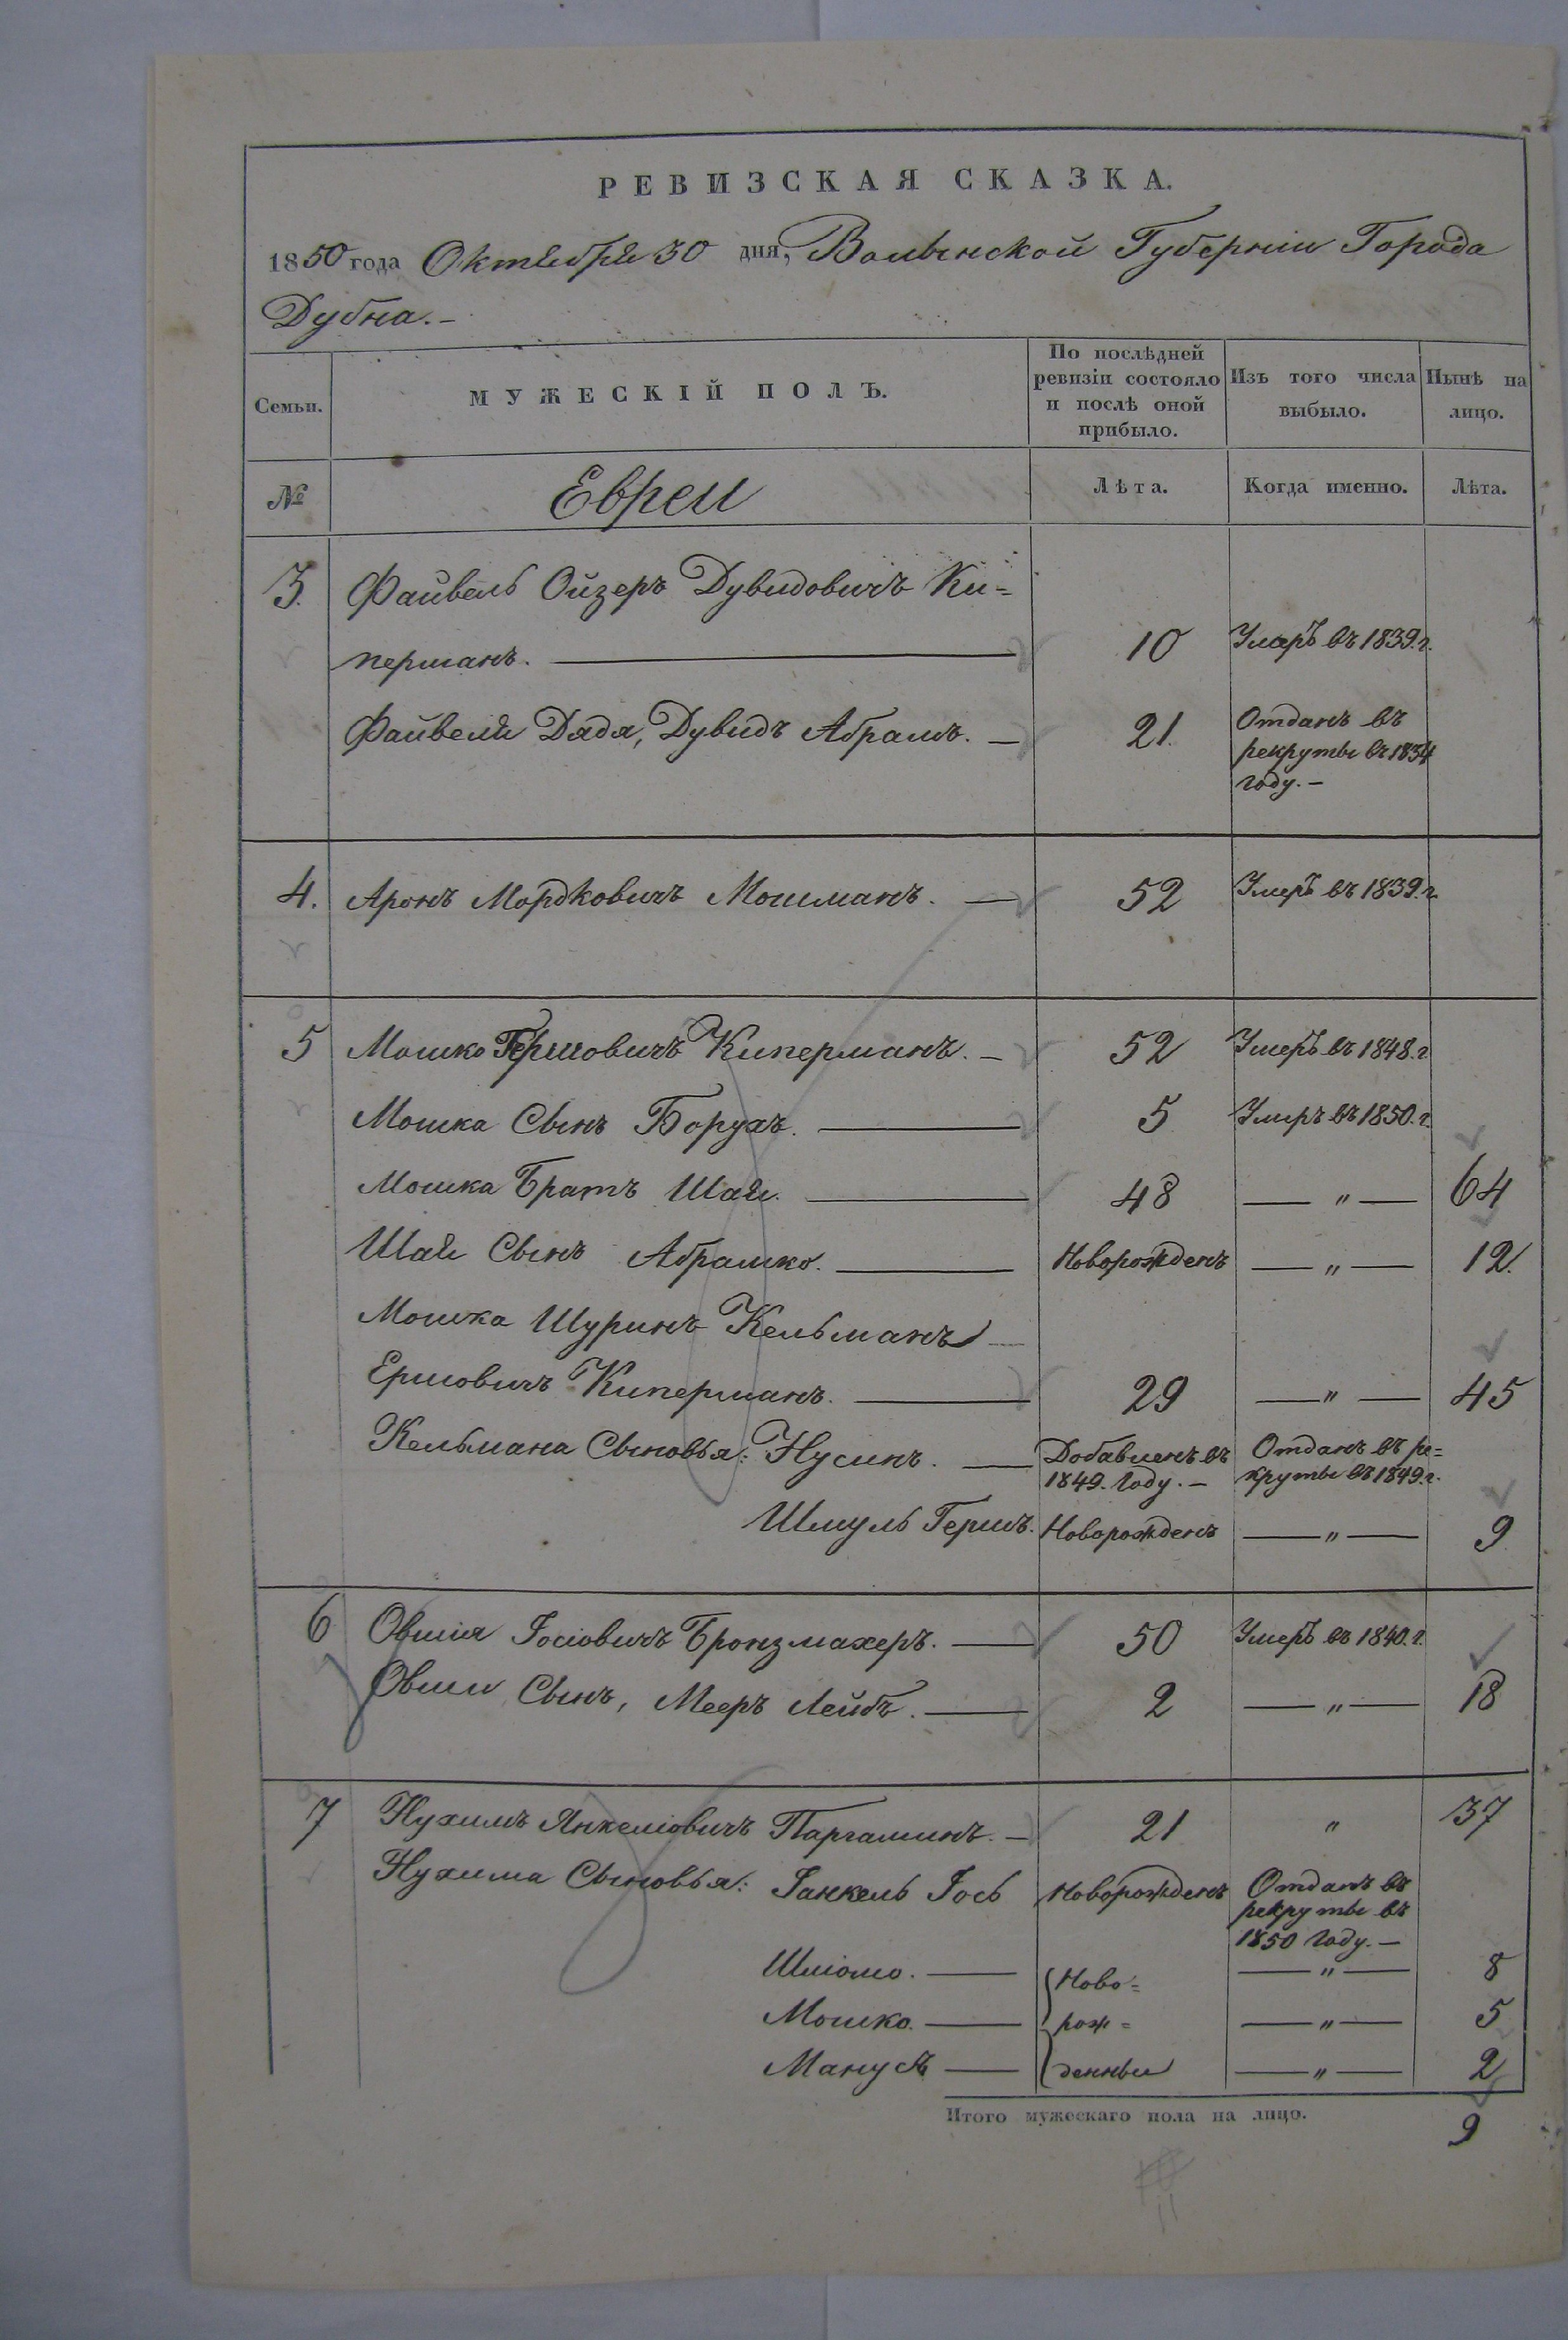 РЕВИЗСКАЯ СКАЗКА.
1850 года Октября 30 дня, Волынской Губерніи Города
Дубна.-
Семьи.
МУЖЕСКІЙ ПОЛЪ.
По послѣдней ревизіи состояло и послѣ оной прибыло.
Изъ того числа выбыло.
Нынѣ на лицо.
№ Евреи Лѣта. Когда именно. Лѣта.
3. Файвель Ойзеръ Дувидовичъ Ки=
перманъ. — 10 Умеръ въ 1839.г.
Файвеля Дядя, Дувидъ Абрамъ. — 21. Отданъ въ
рекруты въ 1834
году. –
4. Аронъ Мордковичъ Мошманъ. — 52 Умеръ въ 1839.г.
5 Мошко Гершовичъ Киперманъ. – 52 Умеръ въ 1848.г.
Мошка Сынъ Борухъ. — 5 Умеръ въ 1850.г.
Мошка Братъ Шая. — 48 — " — 64
Шаи Сынъ Абрамко. — Новорожденъ — " — 12.
Мошка Шуринъ Кельманъ
Ершовичъ Киперманъ. — 29 — " — 45
Кельмана Сыновья: Нусинъ. — Добавленъ въ Отданъ въ ре=
1849. Году. – круты въ 1849.г.
Шмуль Гершъ. Новорожденъ — " — 9
6 Овшія Іосіовичъ Бронзмахеръ. — 50 Умеръ въ 1840.г.
Овши Сынъ, Мееръ Лейбъ. — 2 — " — 18
7 Нухимъ Янкеліовичъ Паргаминъ. – 21 " 37
Нухима Сыновья: Іанкель Іось Новорожденъ Отданъ въ
рекруты въ
1850 Году. –
Шліомо. — Ново= — " — 8
Мошко. — рож= — " — 5
Мануся — денныи — " — 2
Итого мужескаго пола на лицо. 9
11